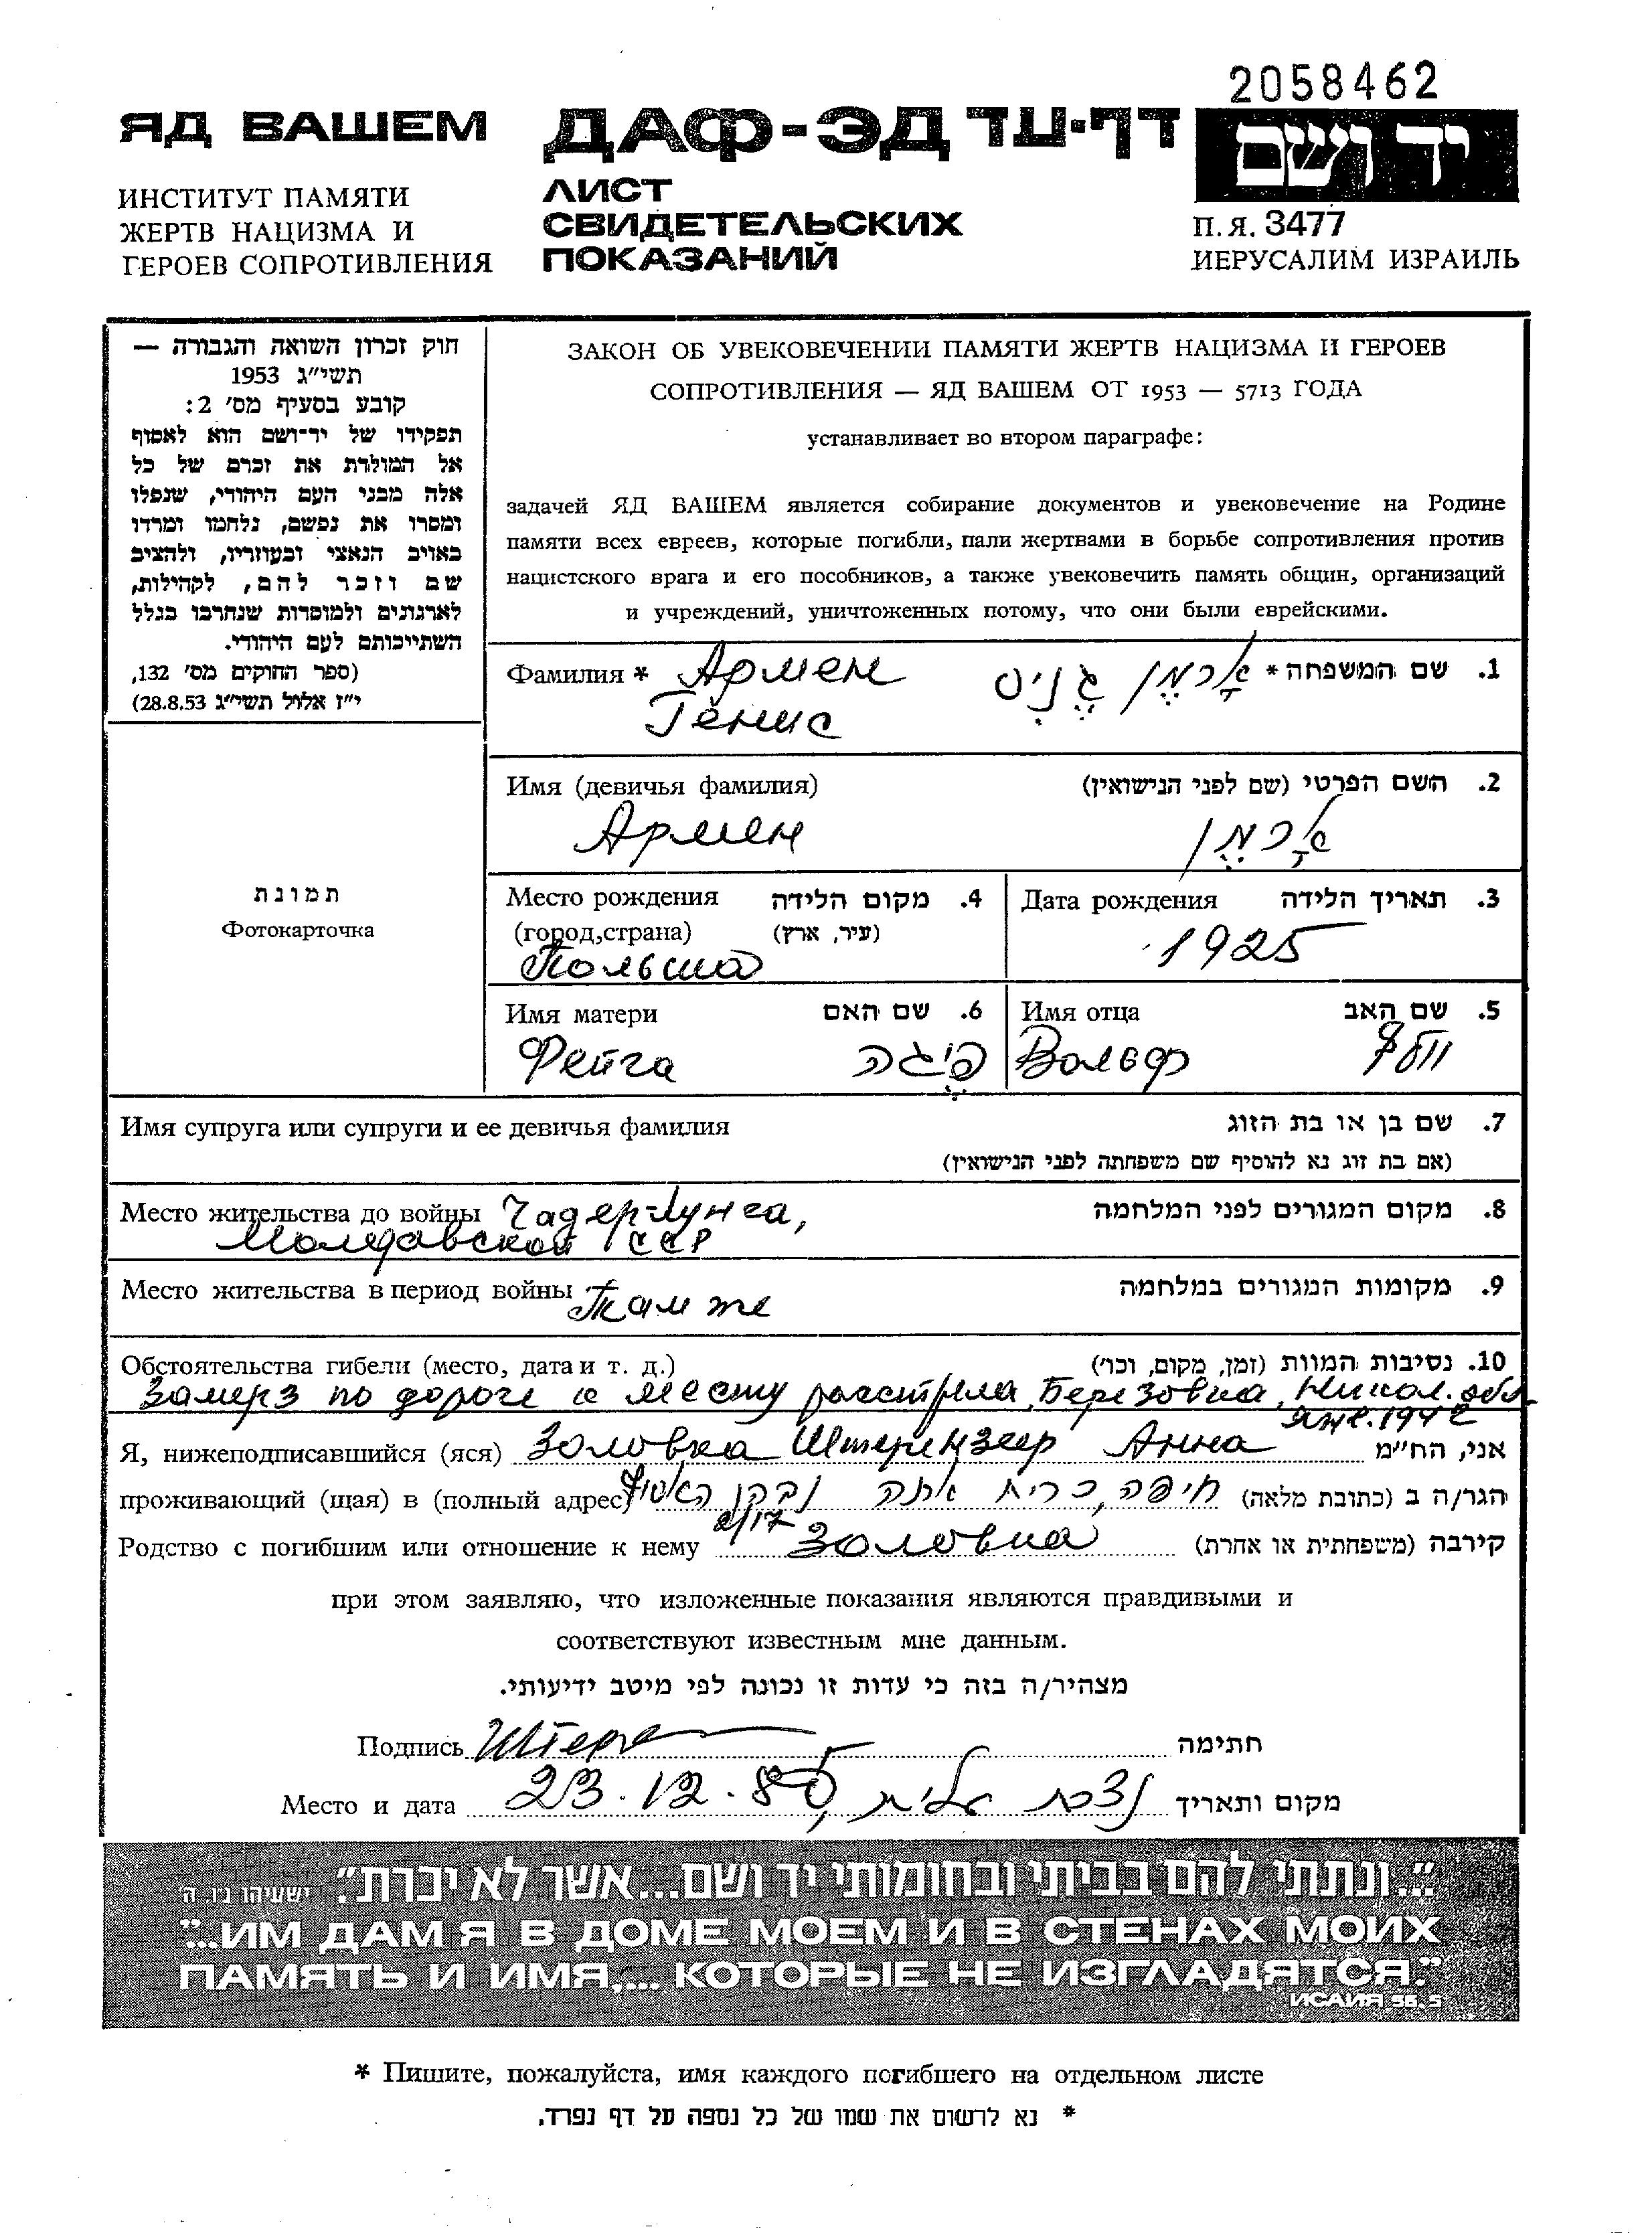 2058462
ЯД ВАШЕМ
ДАФ-ЭД דף-עד
יד ושם
ИНСТИТУТ ПАМЯТИ
ЖЕРТВ НАЦИЗМА И
ГЕРОЕВ СОПРОТИВЛЕНИЯ
ЛИСТ
СВИДЕТЕЛЬСКИХ
ПОКАЗАНИЙ
П.Я. 3477
ИЕРУСАЛИМ ИЗРАИЛЬ
חוק זכרון השואה והגבורה —
תשי״ג 1953
קובע בסעיף מס׳ 2:
תפקידו של יד־ושם הוא לאסוף
אל המולדת את זכרם של כל
אלה מבני העם היהודי, שנפלו
ומסרו את נפשם, נלחמו ומרדו
באויב הנאצי ובעוזריו, ולהציב
שם וזכר להם, לקהילות,
לארגונים ולמוסדות שנחרבו בגלל
השתייכותם לעם היהודי.
(ספר החוקים מס׳ 132,
י״ז אלול תשי״ג 28.8.53)
ЗАКОН ОБ УВЕКОВЕЧЕНИИ ПАМЯТИ ЖЕРТВ НАЦИЗМА И ГЕРОЕВ
СОПРОТИВЛЕНИЯ — ЯД ВАШЕМ ОТ 1953 — 5713 ГОДА
устанавливает во втором параграфе:
задачей ЯД ВАШЕМ является собирание документов и увековечение на Родине
памяти всех евреев, которые погибли, пали жертвами в борьбе сопротивления против
нацистского врага и его пособников, а также увековечить память общин, организаций
и учреждений, уничтоженных потому, что они были еврейскими.
Фамилия * Армен אָרמֶן גֶנִיס שם המשפחה * .1
Генис
Имя (девичья фамилия) השם הפרטי (שם לפני הנישואין) .2
Армен אַרמֶן
תמונת
Фотокарточка
Место рождения מקום הלידה .4
(город,страна) (עיר, ארץ)
Польша
Дата рождения תאריך הלידה .3
1925
Имя матери שם האם .6
Фейга פֶיגה
Имя отца שם האב .5
Вольф וולף
Имя супруга или супруги и ее девичья фамилия שם בן או בת הזוג .7
(אם בת זוג נא להוסיף שם משפחתה לפני הנישואין)
Место жительства до войны Чадер-Лунга, מקום המגורים לפני המלחמה .8
Молдавской ССР
Место жительства в период войны Там же מקומות המגורים במלחמה .9
Обстоятельства гибели (место, дата и т. д.) נסיבות המוות (זמן, מקום, וכו׳) .10
Замерз по дороге к месту расстрела, Березовка, Никол. обл.
янв. 1942
Я, нижеподписавшийся (яся) Золовка Штерензеер Анна אני, הח״מ
проживающий (щая) в (полный адрес) חיפה, קרית אתה הגר/ה ב (כתובת מלאה)
2/17
Родство с погибшим или отношение к нему Золовка קירבה (משפחתית או אחרת)
при этом заявляю, что изложенные показания являются правдивыми и
соответствуют известным мне данным.
מצהיר/ה בזה כי עדות זו נכונה לפי מיטב ידיעותי.
Подпись Штерн חתימה
Место и дата 23.12.85, נצרת עלית מקום ותאריך
"...ונתתי להם בביתי ובחומותי יד ושם...אשר לא יכרת". ישעיהו נ״ו, ה
"...ИМ ДАМ Я В ДОМЕ МОЕМ И В СТЕНАХ МОИХ
ПАМЯТЬ И ИМЯ,... КОТОРЫЕ НЕ ИЗГЛАДЯТСЯ."
ИСАИЯ 56. 5
* Пишите, пожалуйста, имя каждого погибшего на отдельном листе
* נא לרשום את שמו של כל נספה על דף נפרד.